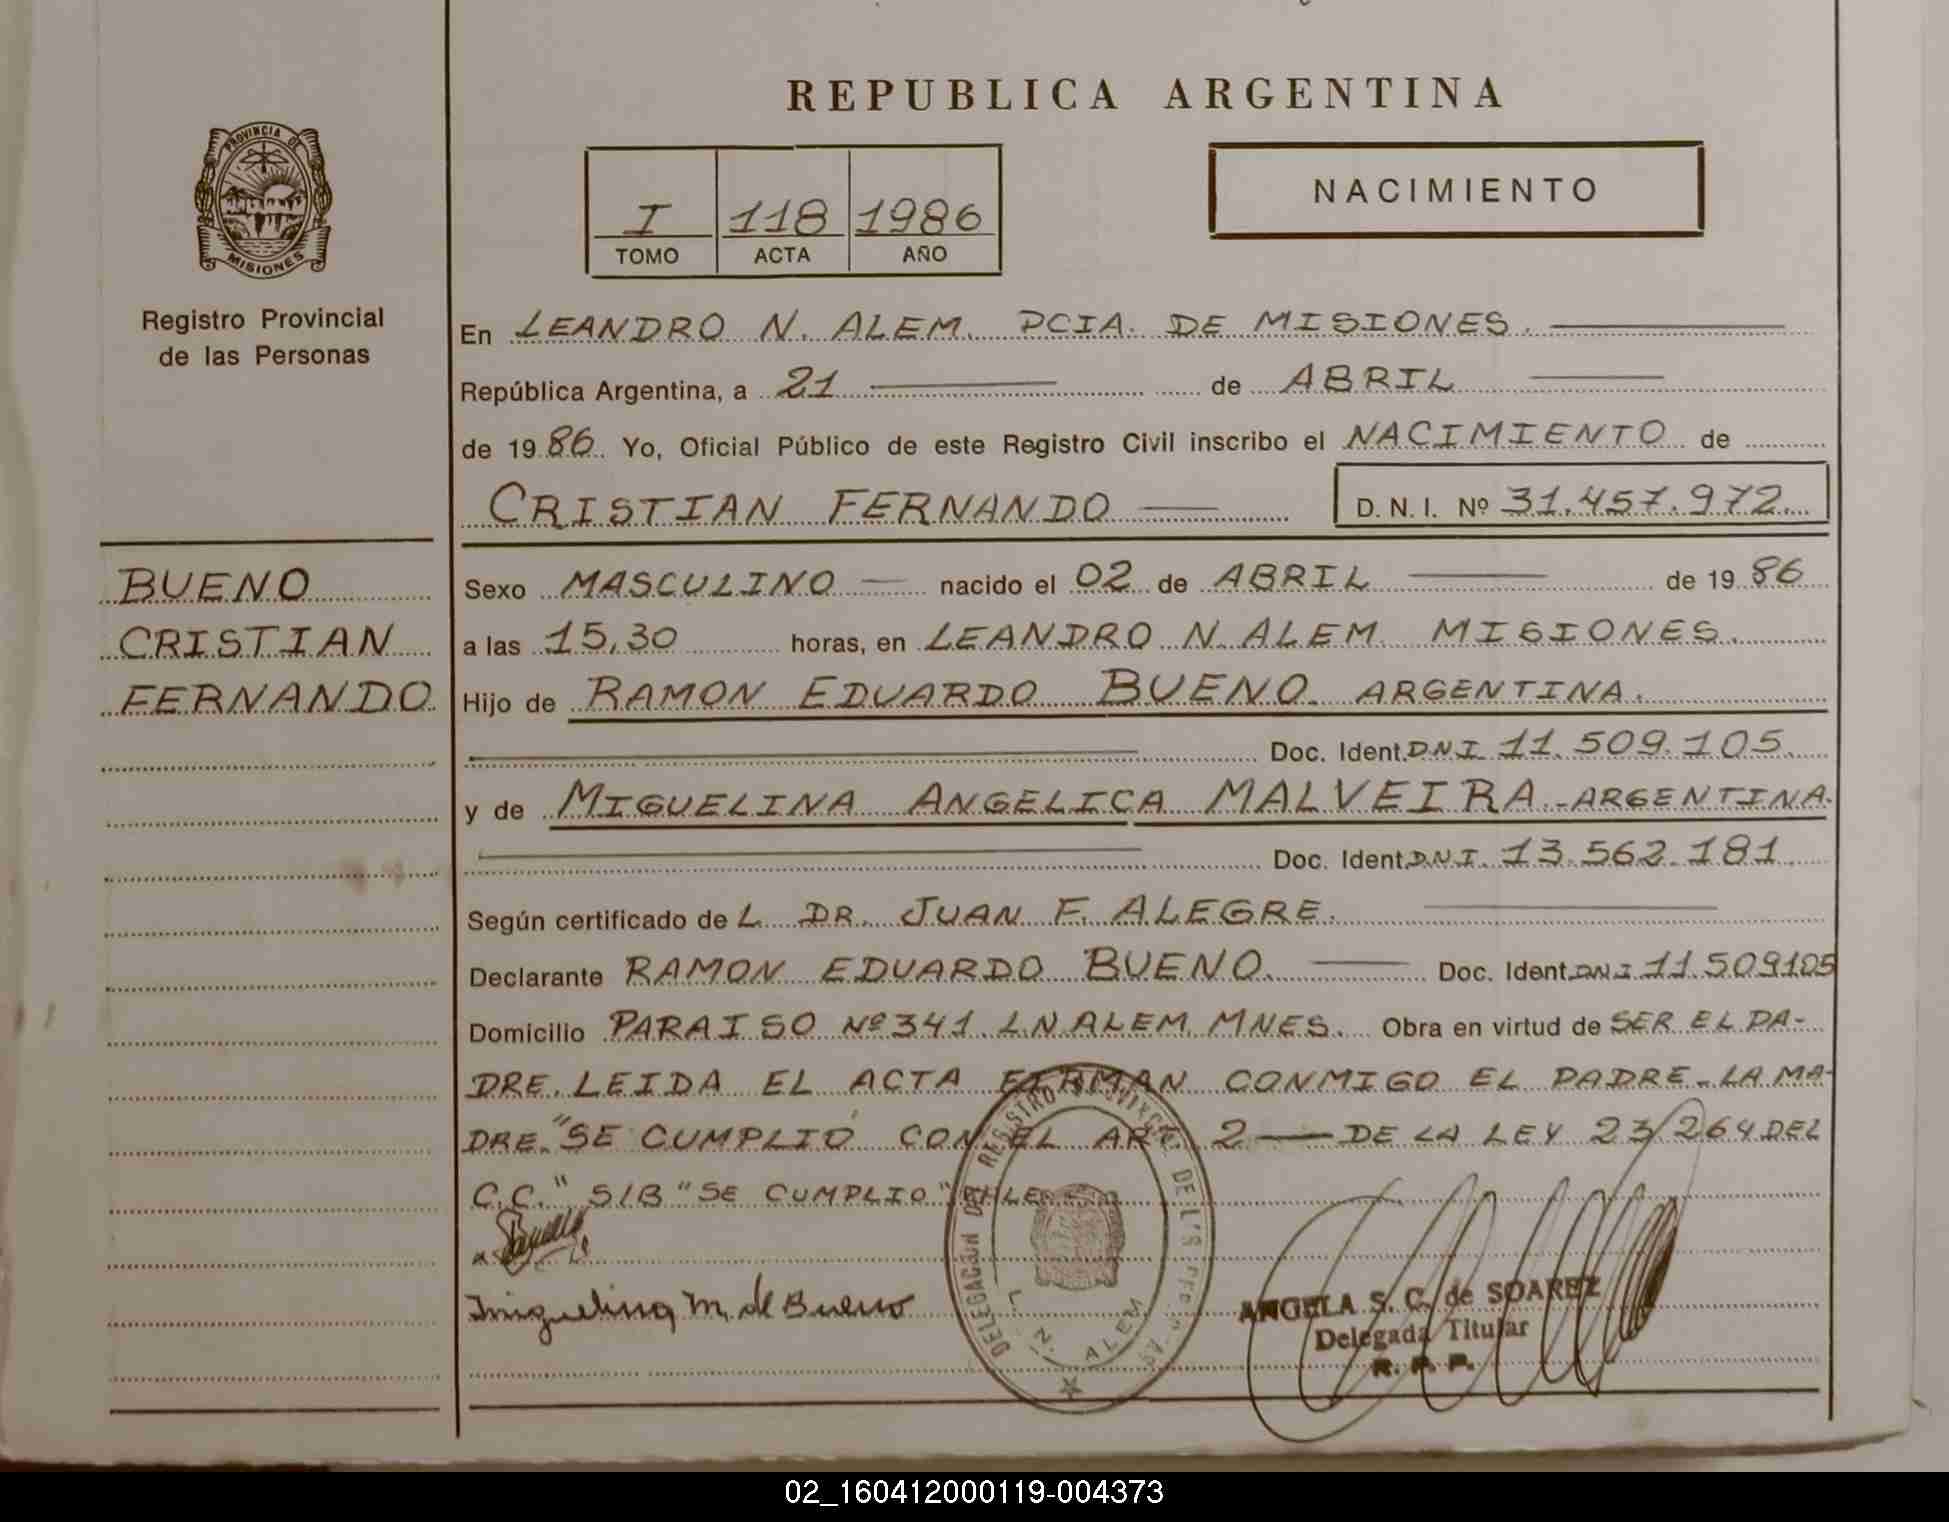 REPUBLICA ARGENTINA
PROVINCIA DE
MISIONES
Registro Provincial
de las Personas
I 118 1986
TOMO ACTA AÑO
NACIMIENTO
En LEANDRO N. ALEM. PCIA. DE MISIONES.
República Argentina, a 21 de ABRIL
de 19 86. Yo, Oficial Público de este Registro Civil inscribo el NACIMIENTO de
CRISTIAN FERNANDO D. N. I. Nº 31.457.972.
BUENO
CRISTIAN
FERNANDO
Sexo MASCULINO nacido el 02 de ABRIL de 19 86
a las 15,30 horas, en LEANDRO N. ALEM. MISIONES.
Hijo de RAMON EDUARDO BUENO. ARGENTINA.
Doc. Ident. DNI 11.509.105.
y de MIGUELINA ANGELICA MALVEIRA - ARGENTINA.
Doc. Ident. D.N.I. 13.562.181
Según certificado de L DR. JUAN F. ALEGRE.
Declarante RAMON EDUARDO BUENO. Doc. Ident. DNI 11.509105
Domicilio PARAISO Nº 341 L.N ALEM MNES. Obra en virtud de SER EL PA-
DRE. LEIDA EL ACTA FIRMAN CONMIGO EL PADRE - LA MA-
DRE. "SE CUMPLIÓ CON EL ART. 2 — DE LA LEY 23/264 DEL
C.C." S/B "SE CUMPLIO" VALE
Miguelina M. de Bueno
DELEGACION DEL REGISTRO PROVINCIAL DE LAS PERS.
L. N. ALEM
ANGELA S. C. de SOAREZ
Delegada Titular
R. P. P.
02_160412000119-004373